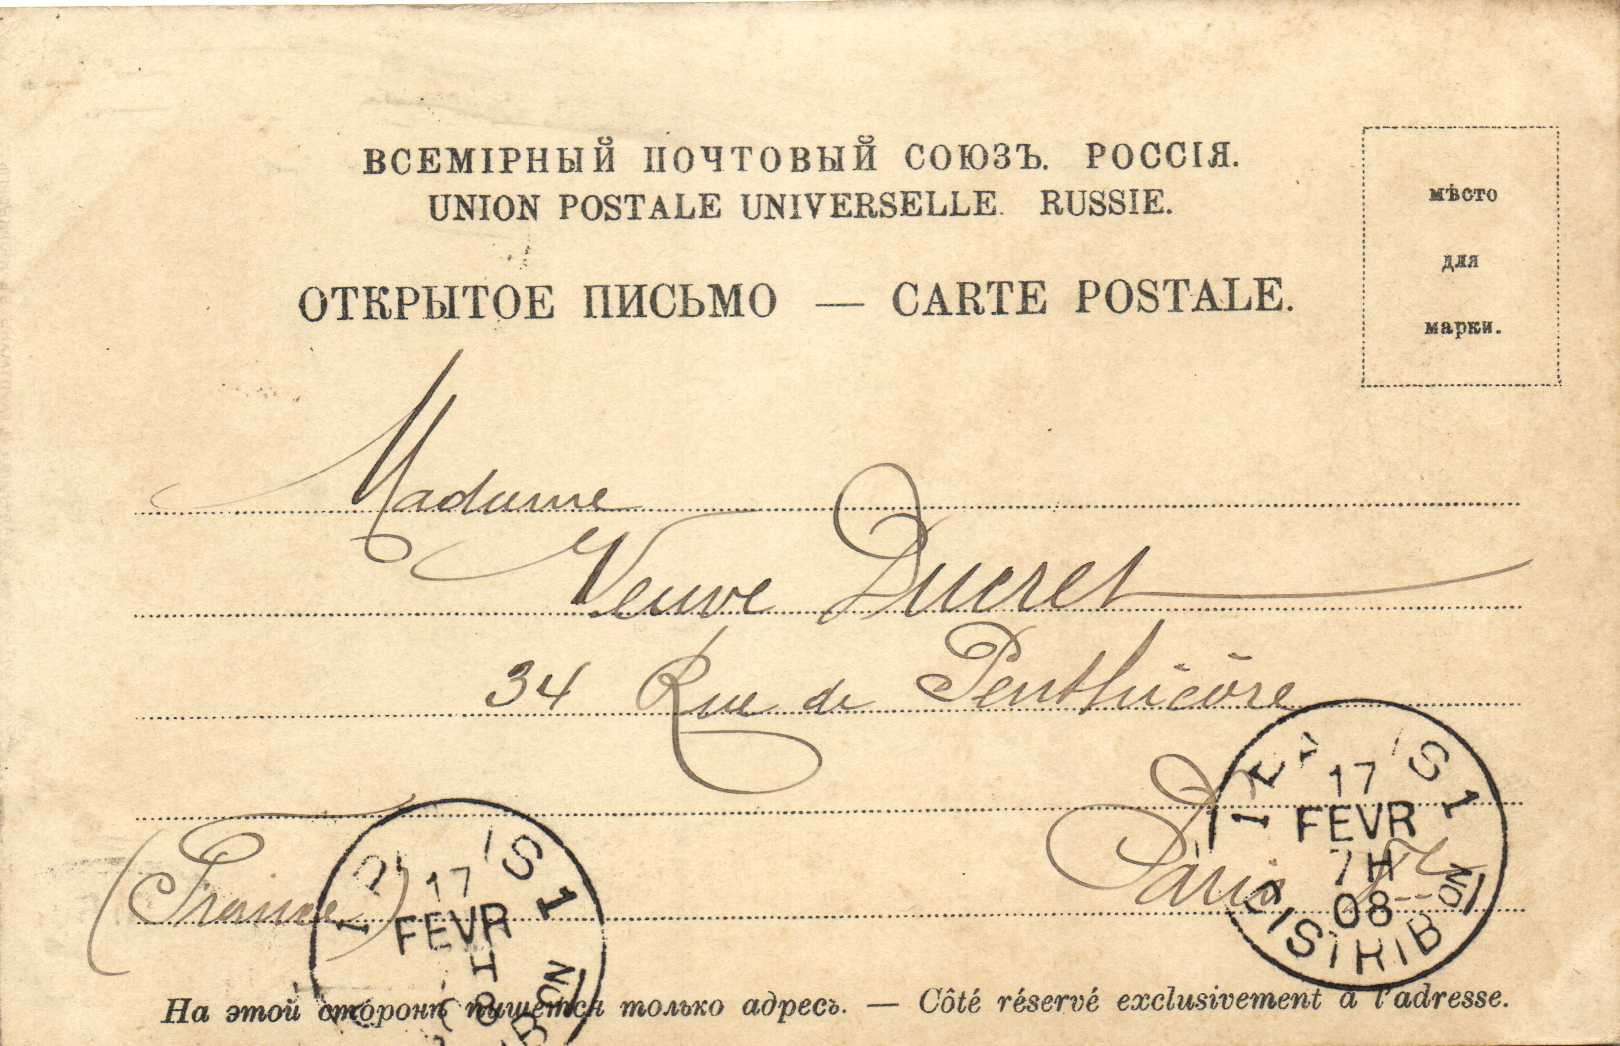 ВСЕМІРНЫЙ ПОЧТОВЫЙ СОЮЗЪ. РОССІЯ.
UNION POSTALE UNIVERSELLE. RUSSIE.
ОТКРЫТОЕ ПИСЬМО — CARTE POSTALE.
мѣсто
для
марки.
Madame
Veuve Ducret
34 Rue de Penthièvre
Paris
(France)
17
FEVR
7H
08
DISTRIBON
17
FEVR
На этой сторонѣ пишется только адресъ. — Côté réservé exclusivement à l'adresse.